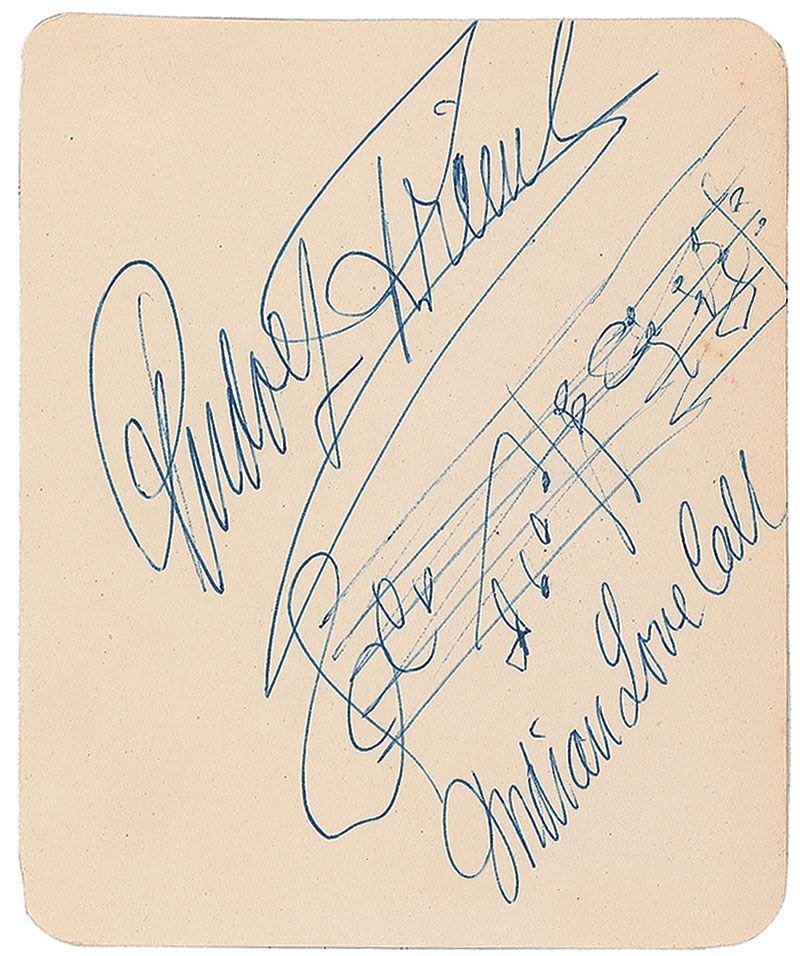 Rudolf Friml
Indian Love Call